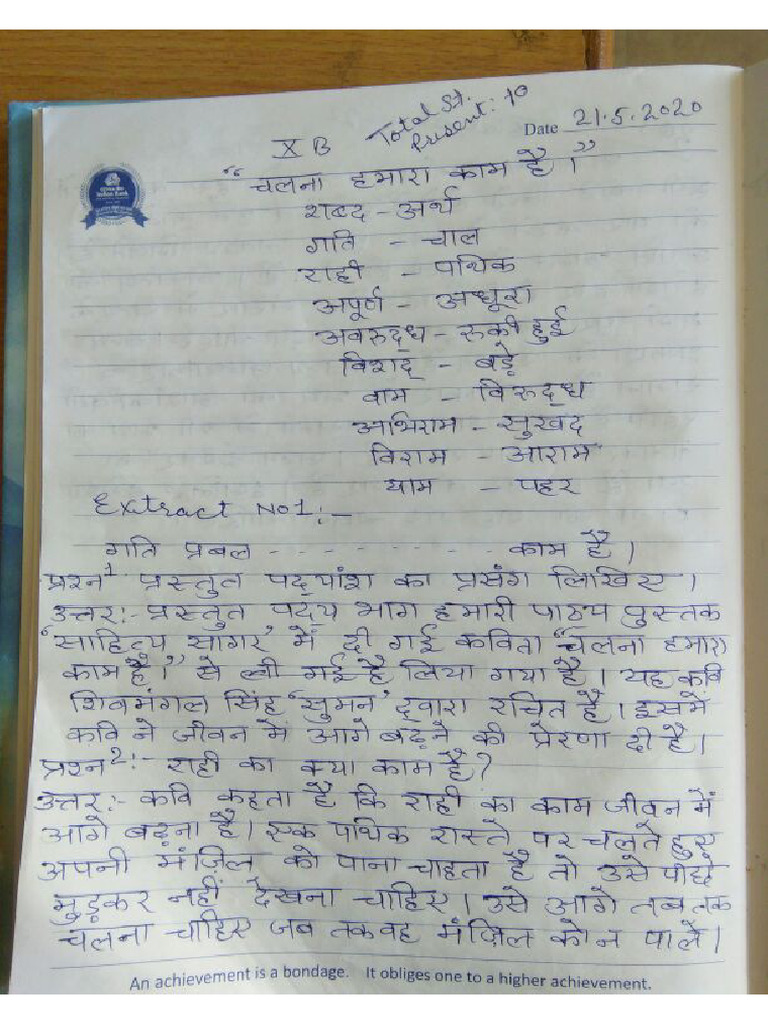 X B
Total St.
Present: 40
Date 21.5.2020
"चलना हमारा काम है।"
शब्द - अर्थ
गति - चाल
राही - पथिक
अपूर्ण - अधूरा
अवरुद्ध - रुकी हुई
विशद् - बड़े
वाम - विरुद्ध
अभिराम - सुखद
विराम - आराम
याम - पहर
Extract No1:-
गति प्रबल - - - - - - - - - काम है।
प्रश्न1 प्रस्तुत पद्यांश का प्रसंग लिखिए।
उत्तर:- प्रस्तुत पद्य भाग हमारी पाठ्य पुस्तक
'साहित्य सागर' में दी गई कविता "चलना हमारा
काम है।" से ली गई है लिया गया है। यह कवि
शिवमंगल सिंह 'सुमन' द्वारा रचित है। इसमें
कवि ने जीवन में आगे बढ़ने की प्रेरणा दी है।
प्रश्न2:- राही का क्या काम है?
उत्तर:- कवि कहता है कि राही का काम जीवन में
आगे बढ़ना है। एक पथिक रास्ते पर चलते हुए
अपनी मंज़िल को पाना चाहता है तो उसे पीछे
मुड़कर नहीं देखना चाहिए। उसे आगे तब तक
चलना चाहिए जब तक वह मंज़िल को न पाले।
An achievement is a bondage. It obliges one to a higher achievement.